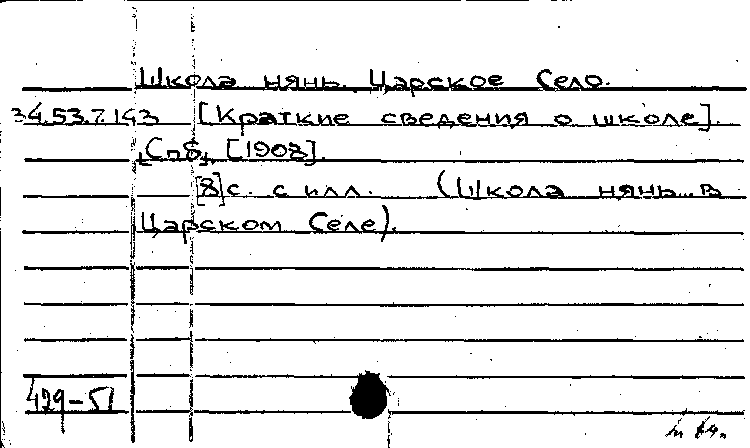 Школа нянь. Царское Село.
34.53.7.143 [Краткие сведения о школе].
Спб, [1908].
[8]с. с илл. (Школа нянь в
Царском Селе).
429-51